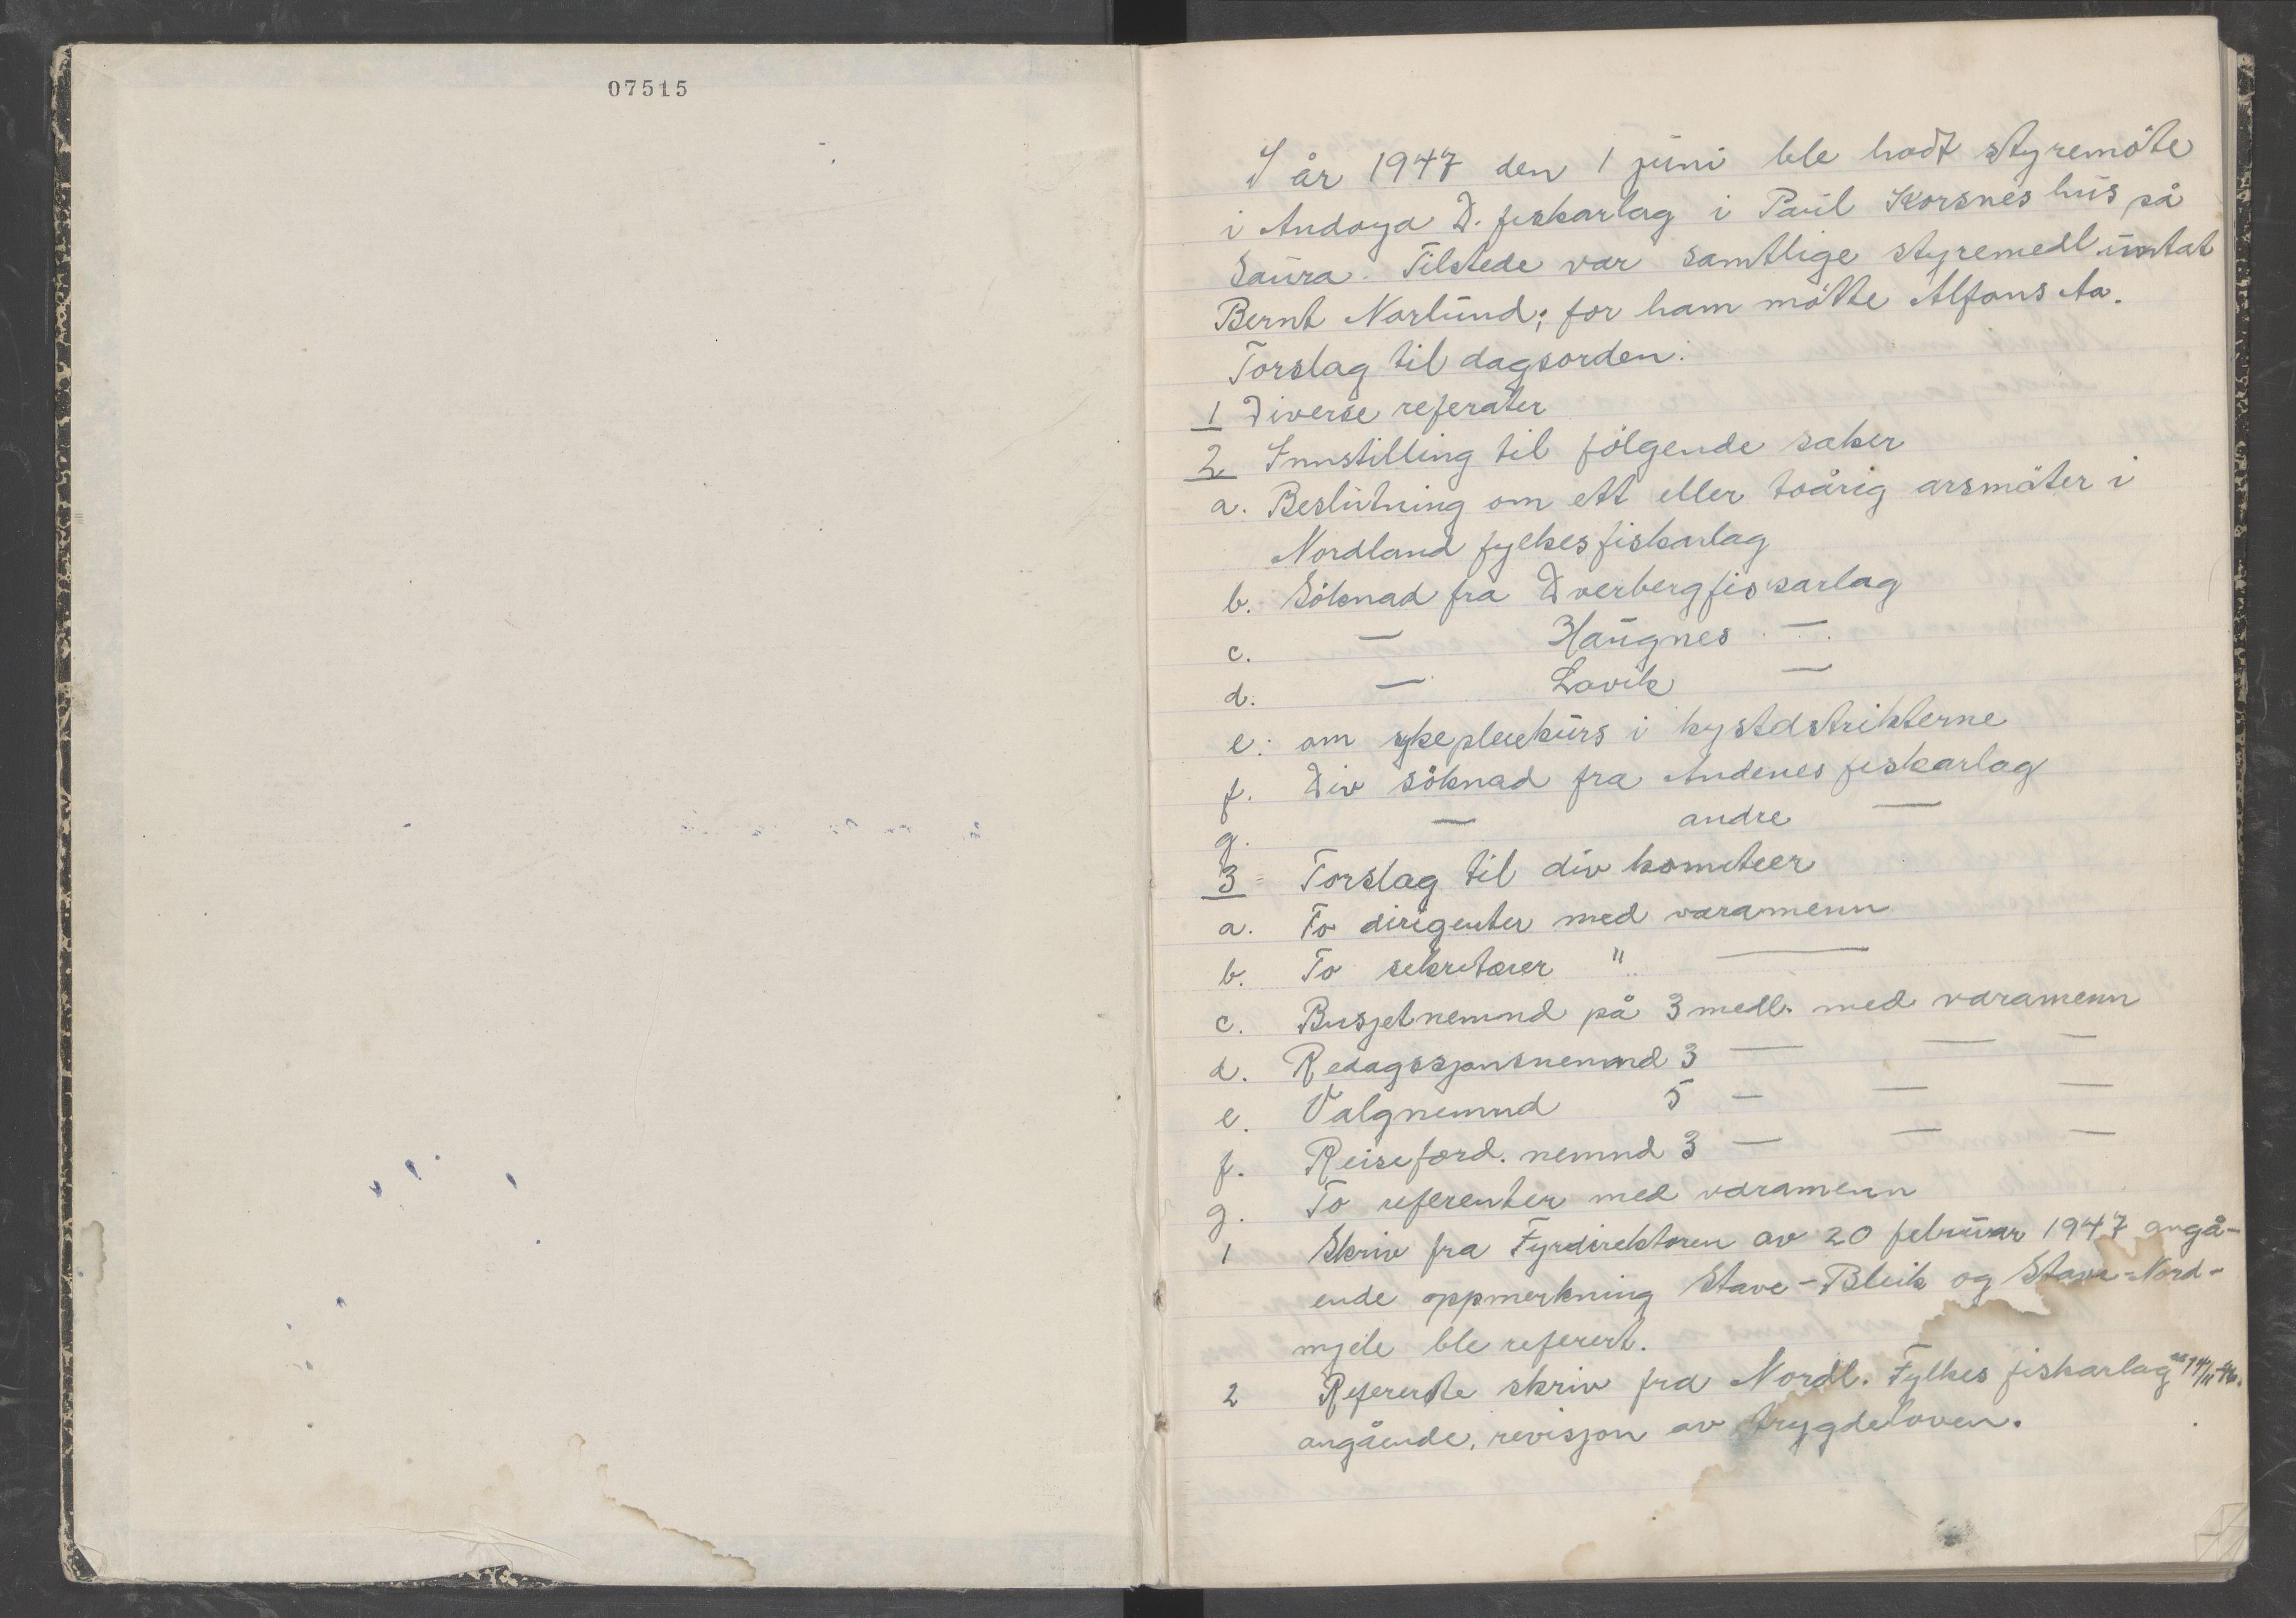 07515
I år 1947 den 1 juni ble hadt styremöte
i Andøya D. fiskarlag i Paul Korsnes hus på
Saura. Tilstede var samtlige styremedl. untat
Bernt Norlund; for ham mötte Alfons Aa.
Forslag til dagsorden:
1 Diverse referater
2 Innstilling til fölgende saker
a. Beslutning om ett eller toårig arsmöter i
Nordland fylkes fiskarlag
b. Söknad fra Dverberg fiskarlag
c. — Haugnes —
d. — Lovik —
e. om sykepleiekurs i kystdstrikterne
f. Div söknad fra Andenes fiskarlag
g. — andre —
3 Forslag til div komiteer
a. To dirigenter med varamenn
b. To sekretærer " —
c. Busjetnemnd på 3 medl. med varamenn
d. Redagssjonsnemnd 3 — — —
e. Valgnemnd 5 — — —
f. Reiseford. nemnd 3 — — —
g. To referenter med varamenn
1 Skriv fra Fyrdirektoren av 20 februar 1947 angå-
ende oppmerkning Stave-Bleik og Stave-Nord-
mjele ble referert.
2 Refererte skriv fra Nordl. Fylkes fiskarlag av 14/11-46.
angående, revisjon av trygdeloven.